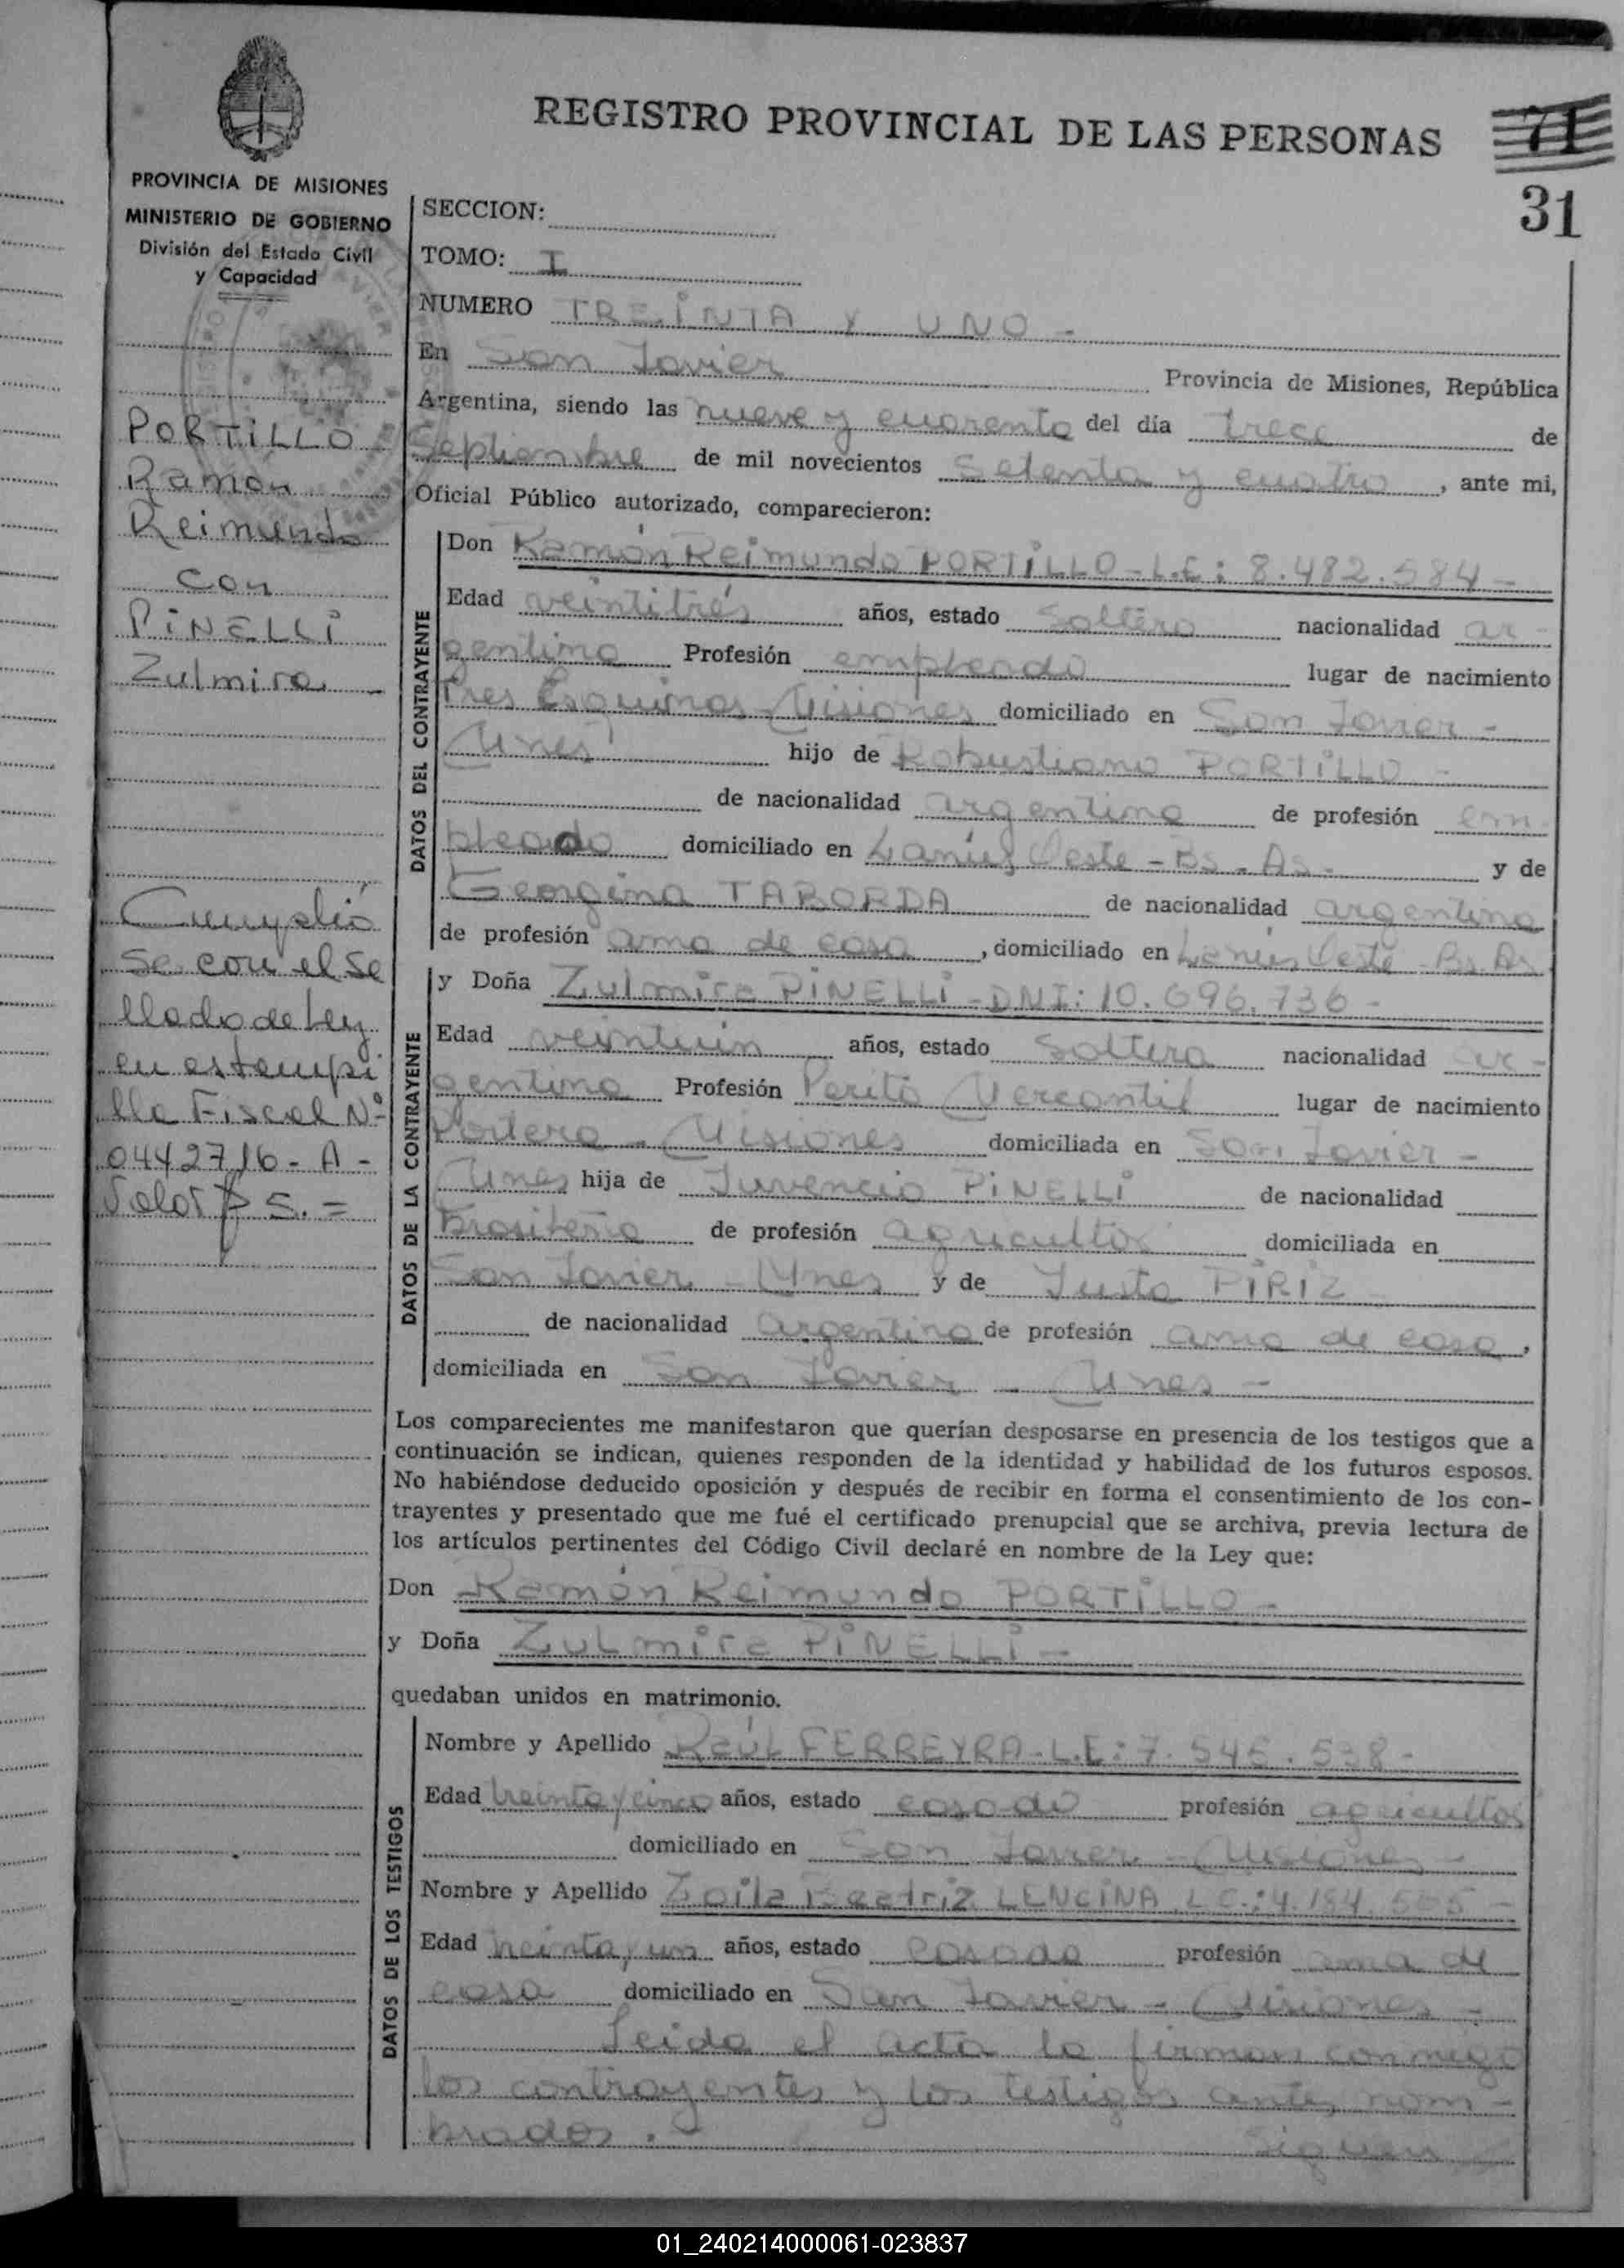 REGISTRO PROVINCIAL DE LAS PERSONAS
71
31
PROVINCIA DE MISIONES
MINISTERIO DE GOBIERNO
División del Estado Civil
y Capacidad
PORTILLO
Ramón
Reimundo
con
PINELLI
Zulmira -
Cumplió
se con el se
llado de Ley
en estampi
lla Fiscal Nº
0442716 - A -
Valor $ 5. =
SECCION:
TOMO: I
NUMERO TREINTA Y UNO -
En San Javier Provincia de Misiones, República
Argentina, siendo las nueve y cuarenta del día trece de
Septiembre de mil novecientos setenta y cuatro, ante mi,
Oficial Público autorizado, comparecieron:
DATOS DEL CONTRAYENTE
Don Ramón Reimundo PORTILLO - L.E: 8.482.584 -
Edad veintitrés años, estado soltero nacionalidad ar-
gentina Profesión empleado lugar de nacimiento
Tres Esquinas - Misiones domiciliado en San Javier -
Mnes hijo de Robustiano PORTILLO -
de nacionalidad argentina de profesión em-
pleado domiciliado en Lanús Oeste - Bs. As. y de
Georgina TABORDA de nacionalidad argentina
de profesión ama de casa, domiciliado en Lanús Oeste - Bs. As
DATOS DE LA CONTRAYENTE
y Doña Zulmira PINELLI - DNI: 10.696.736 -
Edad veintiún años, estado soltera nacionalidad ar-
gentina Profesión Perito Mercantil lugar de nacimiento
Portera - Misiones domiciliada en San Javier -
Mnes hija de Juvencio PINELLI de nacionalidad
brasileña de profesión agricultor domiciliada en
San Javier - Mnes y de Justa PIRIZ
de nacionalidad argentina de profesión ama de casa,
domiciliada en San Javier - Mnes -
Los comparecientes me manifestaron que querían desposarse en presencia de los testigos que a
continuación se indican, quienes responden de la identidad y habilidad de los futuros esposos.
No habiéndose deducido oposición y después de recibir en forma el consentimiento de los con-
trayentes y presentado que me fué el certificado prenupcial que se archiva, previa lectura de
los artículos pertinentes del Código Civil declaré en nombre de la Ley que:
Don Ramón Reimundo PORTILLO -
y Doña Zulmira PINELLI -
quedaban unidos en matrimonio.
DATOS DE LOS TESTIGOS
Nombre y Apellido Raúl FERREYRA - L.E: 7.545.538 -
Edad treinta y cinco años, estado casado profesión agricultor
domiciliado en San Javier - Misiones -
Nombre y Apellido Zoila Beatriz LENCINA L.C.: 4.184.505 -
Edad treinta y un años, estado casada profesión ama de
casa domiciliado en San Javier - Misiones -
Leida el acta la firman conmigo
los contrayentes y los testigos antes nom-
brados. - Siguen
01_240214000061-023837